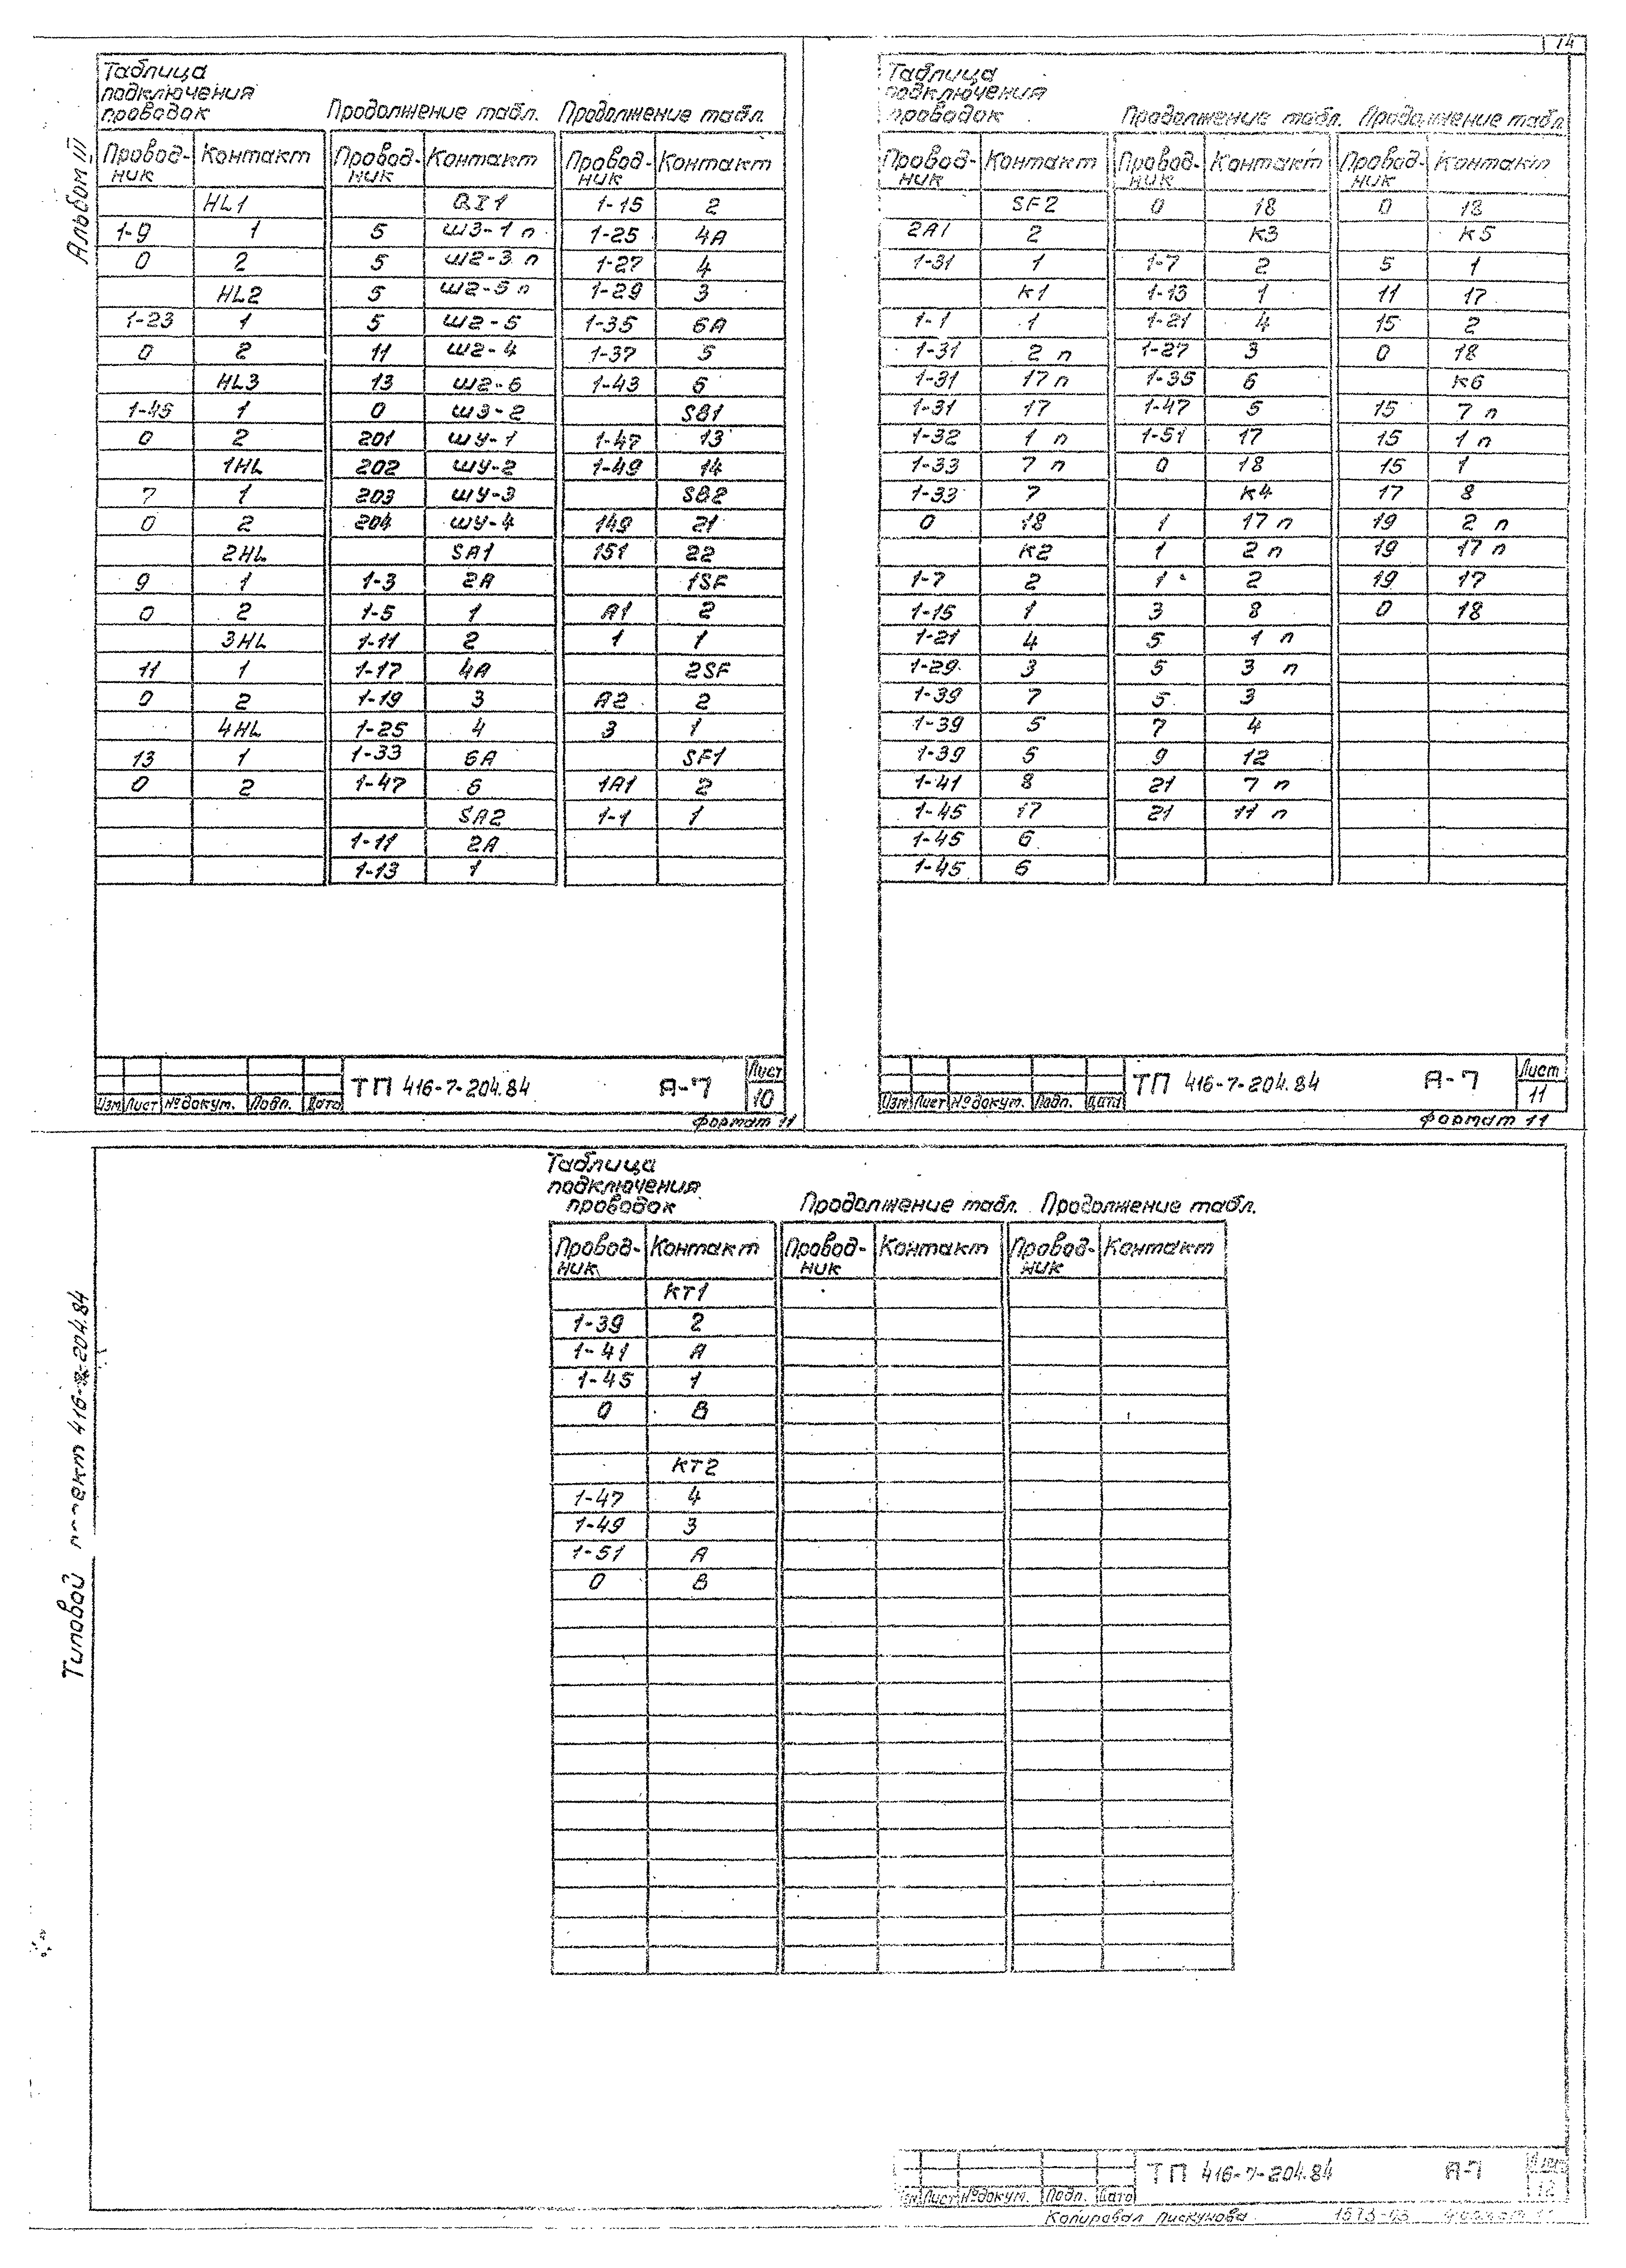 14
Альбом III
Таблица
подключения
проводок
Продолжение табл.
Продолжение табл.
Провод-
ник
Контакт
Провод-
ник
Контакт
Провод-
ник
Контакт
HL1 QI1 1-15 2
1-9 1 5 Ш3-1 п 1-25 4А
0 2 5 Ш2-3 п 1-27 4
HL2 5 Ш2-5 п 1-29 3
1-23 1 5 Ш2-5 1-35 6А
0 2 11 Ш2-4 1-37 5
HL3 13 Ш2-6 1-43 6
1-45 1 0 Ш3-2 SB1
0 2 201 ШУ-1 1-47 13
1HL 202 ШУ-2 1-49 14
7 1 203 ШУ-3 SB2
0 2 204 ШУ-4 149 21
2HL SA1 151 22
9 1 1-3 2А 1SF
0 2 1-5 1 А1 2
3HL 1-11 2 1 1
11 1 1-17 4А 2SF
0 2 1-19 3 А2 2
4HL 1-25 4 3 1
13 1 1-33 6А SF1
0 2 1-47 6 1А1 2
SA2 1-1 1
1-11 2А
1-13 1
Изм Лист № докум. Подп. Дата
ТП 416-7-204.84 А-7
Лист
10
Формат 11
Таблица
подключения
проводок
Продолжение табл.
Продолжение табл
Провод-
ник
Контакт
Провод-
ник
Контакт
Провод-
ник
Контакт
SF2 0 18 0 18
2А1 2 К3 К5
1-31 1 1-7 2 5 1
К1 1-13 1 11 17
1-1 1 1-21 4 15 2
1-31 2 п 1-27 3 0 18
1-31 17 п 1-35 6 К6
1-31 17 1-47 5 15 7 п
1-32 1 п 1-51 17 15 1 п
1-33 7 п 0 18 15 1
1-33 7 К4 17 8
0 18 1 17 п 19 2 п
К2 1 2 п 19 17 п
1-7 2 1 2 19 17
1-15 1 3 8 0 18
1-21 4 5 1 п
1-29 3 5 3 п
1-39 7 5 3
1-39 5 7 4
1-39 5 9 12
1-41 8 21 7 п
1-45 17 21 11 п
1-45 6
1-45 6
Изм Лист № докум. Подп. Дата
ТП 416-7-204.84 А-7
Лист
11
Формат 11
Типовой 416-7-204.84
Таблица
подключения
проводок
Продолжение табл.
Продолжение табл.
Провод-
ник
Контакт
Провод-
ник
Контакт
Провод-
ник
Контакт
КТ1
1-39 2
1-41 А
1-45 1
0 В
КТ2
1-47 4
1-49 3
1-51 А
0 В
Лист № докум. Подп. Дата
ТП 416-7-204.84 А-7
Лист
12
Копировал Пискунова